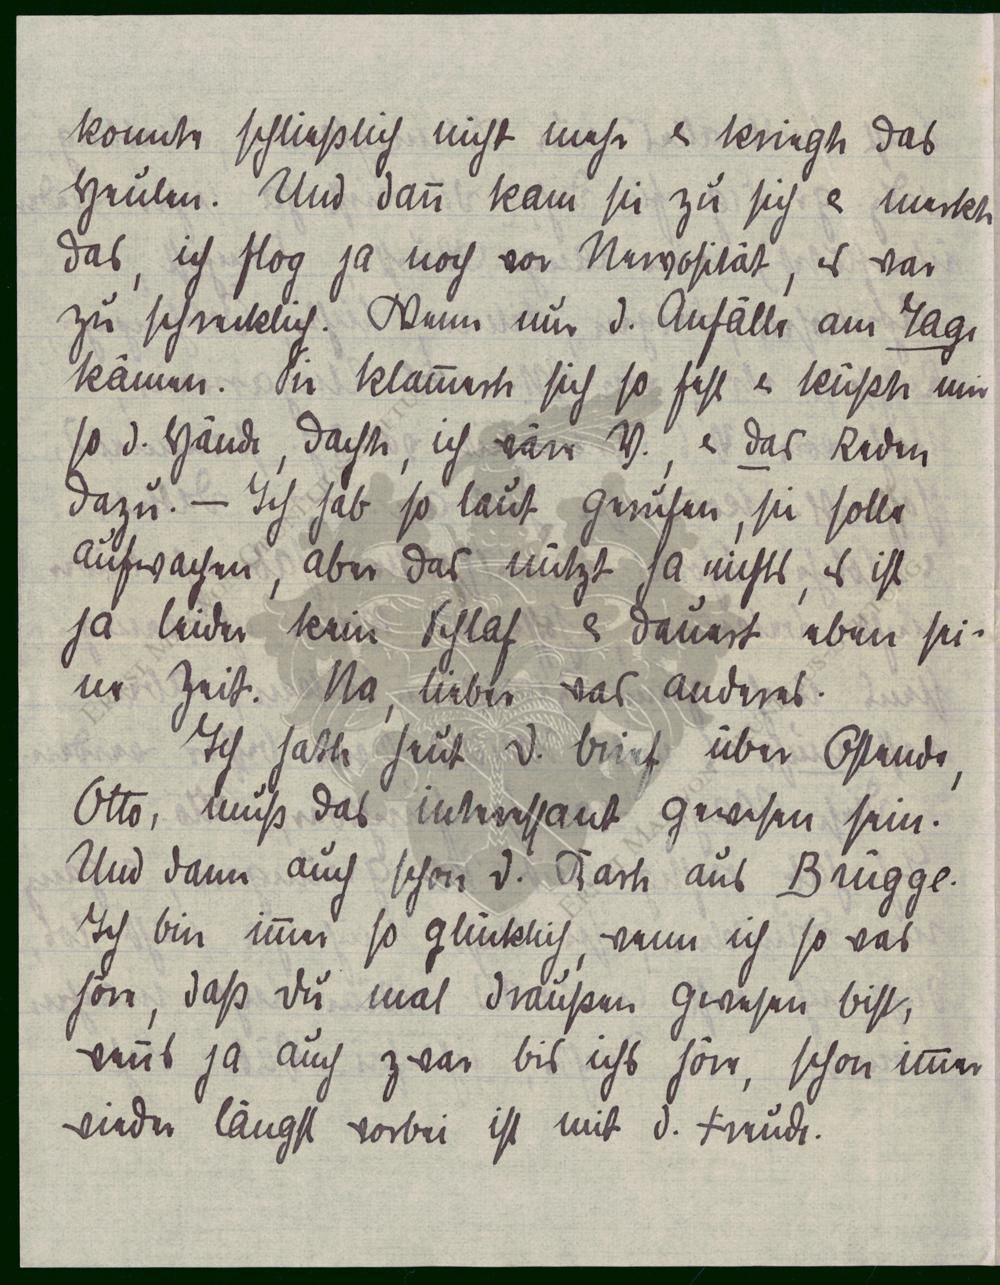 konnte schließlich nicht mehr & kriegte das
Heulen. Und dañ kam sie zu sich & merkte
das, ich flog ja noch vor Nervosität, es war
zu schrecklich. Wenn nur d. Anfälle am Tage
kämen. Sie klam̄erte sich so fest & küßte mir
so d. Hände, dachte, ich wäre V., & das Reden
dazu. — Ich hab so laut gerufen, sie solle
aufwachen, aber das nützt ja nichts, es ist
ja leider kein Schlaf & dauert eben sei-
ne Zeit. Na, lieber was anderes.
Ich hatte heut d. brief über Ostende,
Otto, muß das interessant gewesen sein.
Und dann auch schon d. Karte aus Brügge.
Ich bin im̄er so glücklich, wenn ich so was
höre, daß du mal draußen gewesen bist,
weñs ja auch zwar bis ichs höre, schon im̄er
wieder längst vorbei ist mit d. Freude.